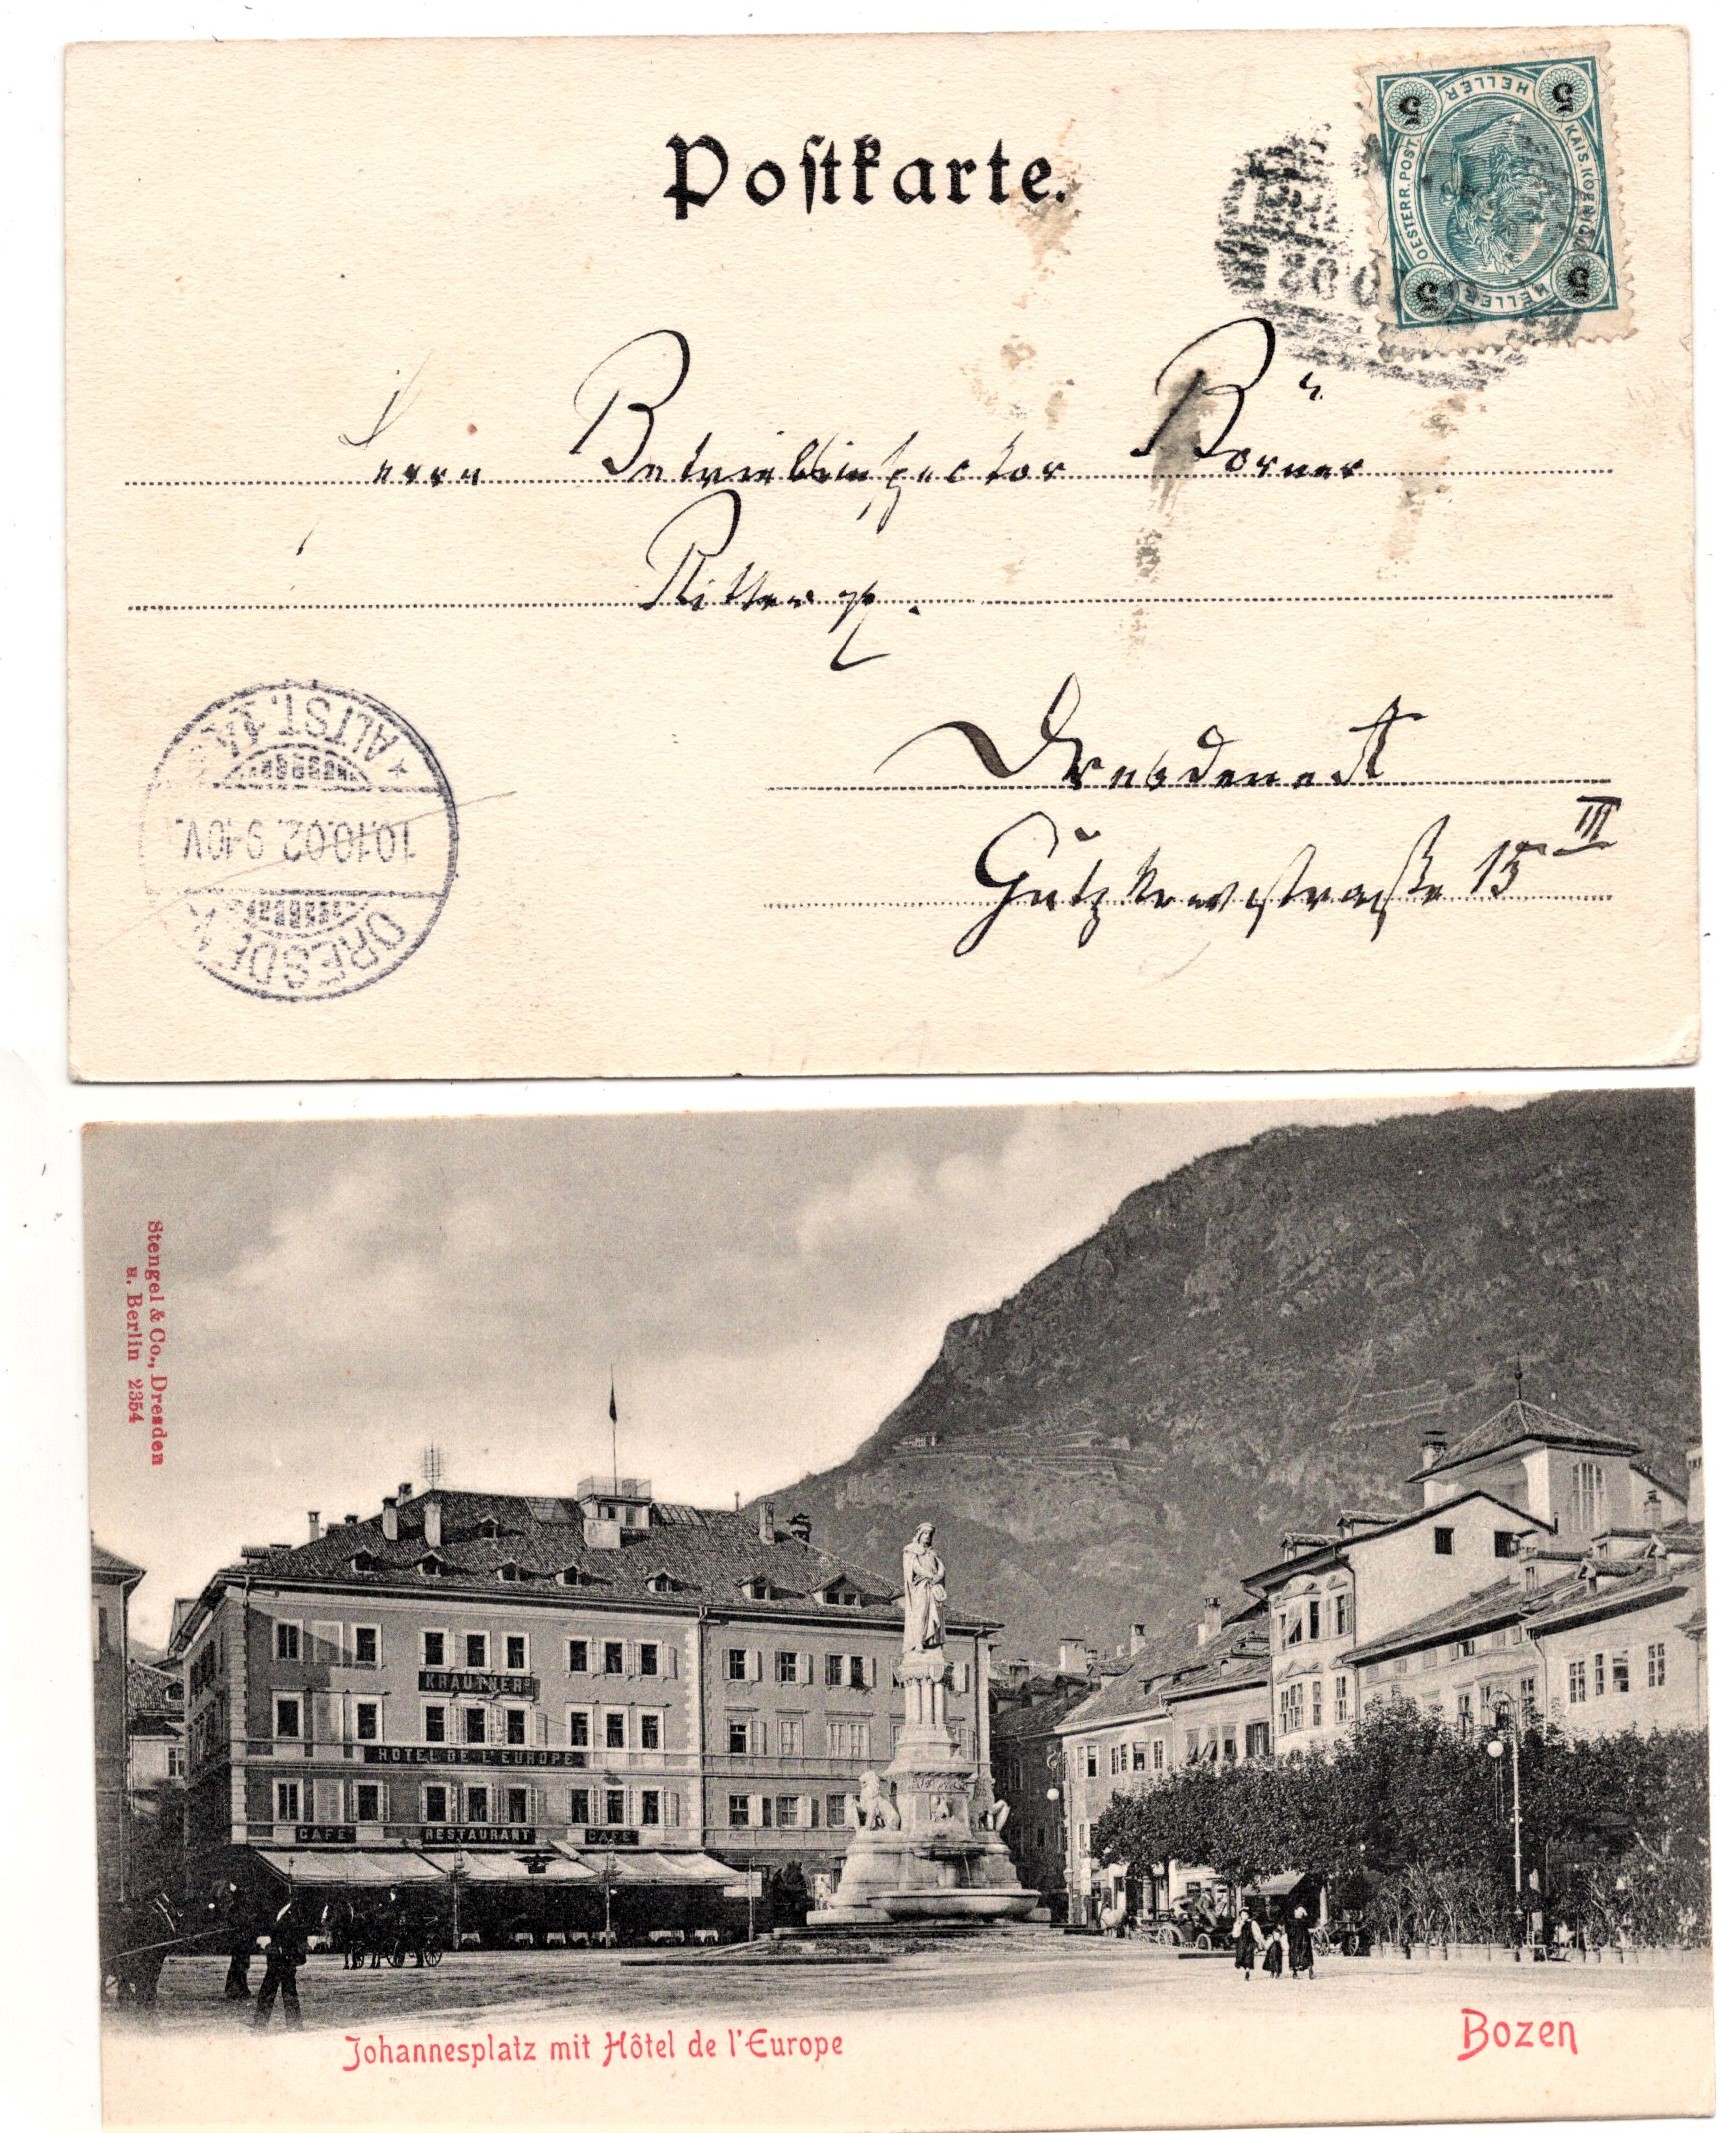 Postkarte.
5 HELLER 5
OESTERR. POST.
KAIS. KOENIGL.
5 HELLER 5
02
Herrn Betriebsinspector Börner
Ritter pp.
Dresden Alt
Gutzkowstraße 15 III
DRESDEN
10.10.02. 9-10V.
* ALTST. 1
Stengel & Co., Dresden
u. Berlin 2354
KRAUTNERS
HOTEL DE L'EUROPE
CAFE RESTAURANT CAFE
Johannesplatz mit Hôtel de l'Europe
Bozen